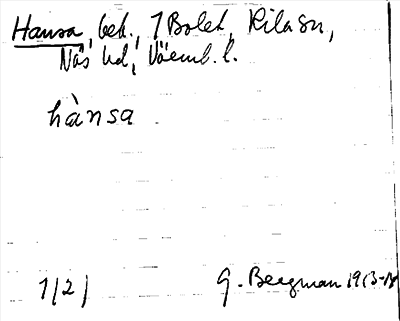 Hansa, bet., 1 Bolet, Rilasn,
Näs hd, Värml. l.
hànsa
1/2/ G. Bergman 1913-18